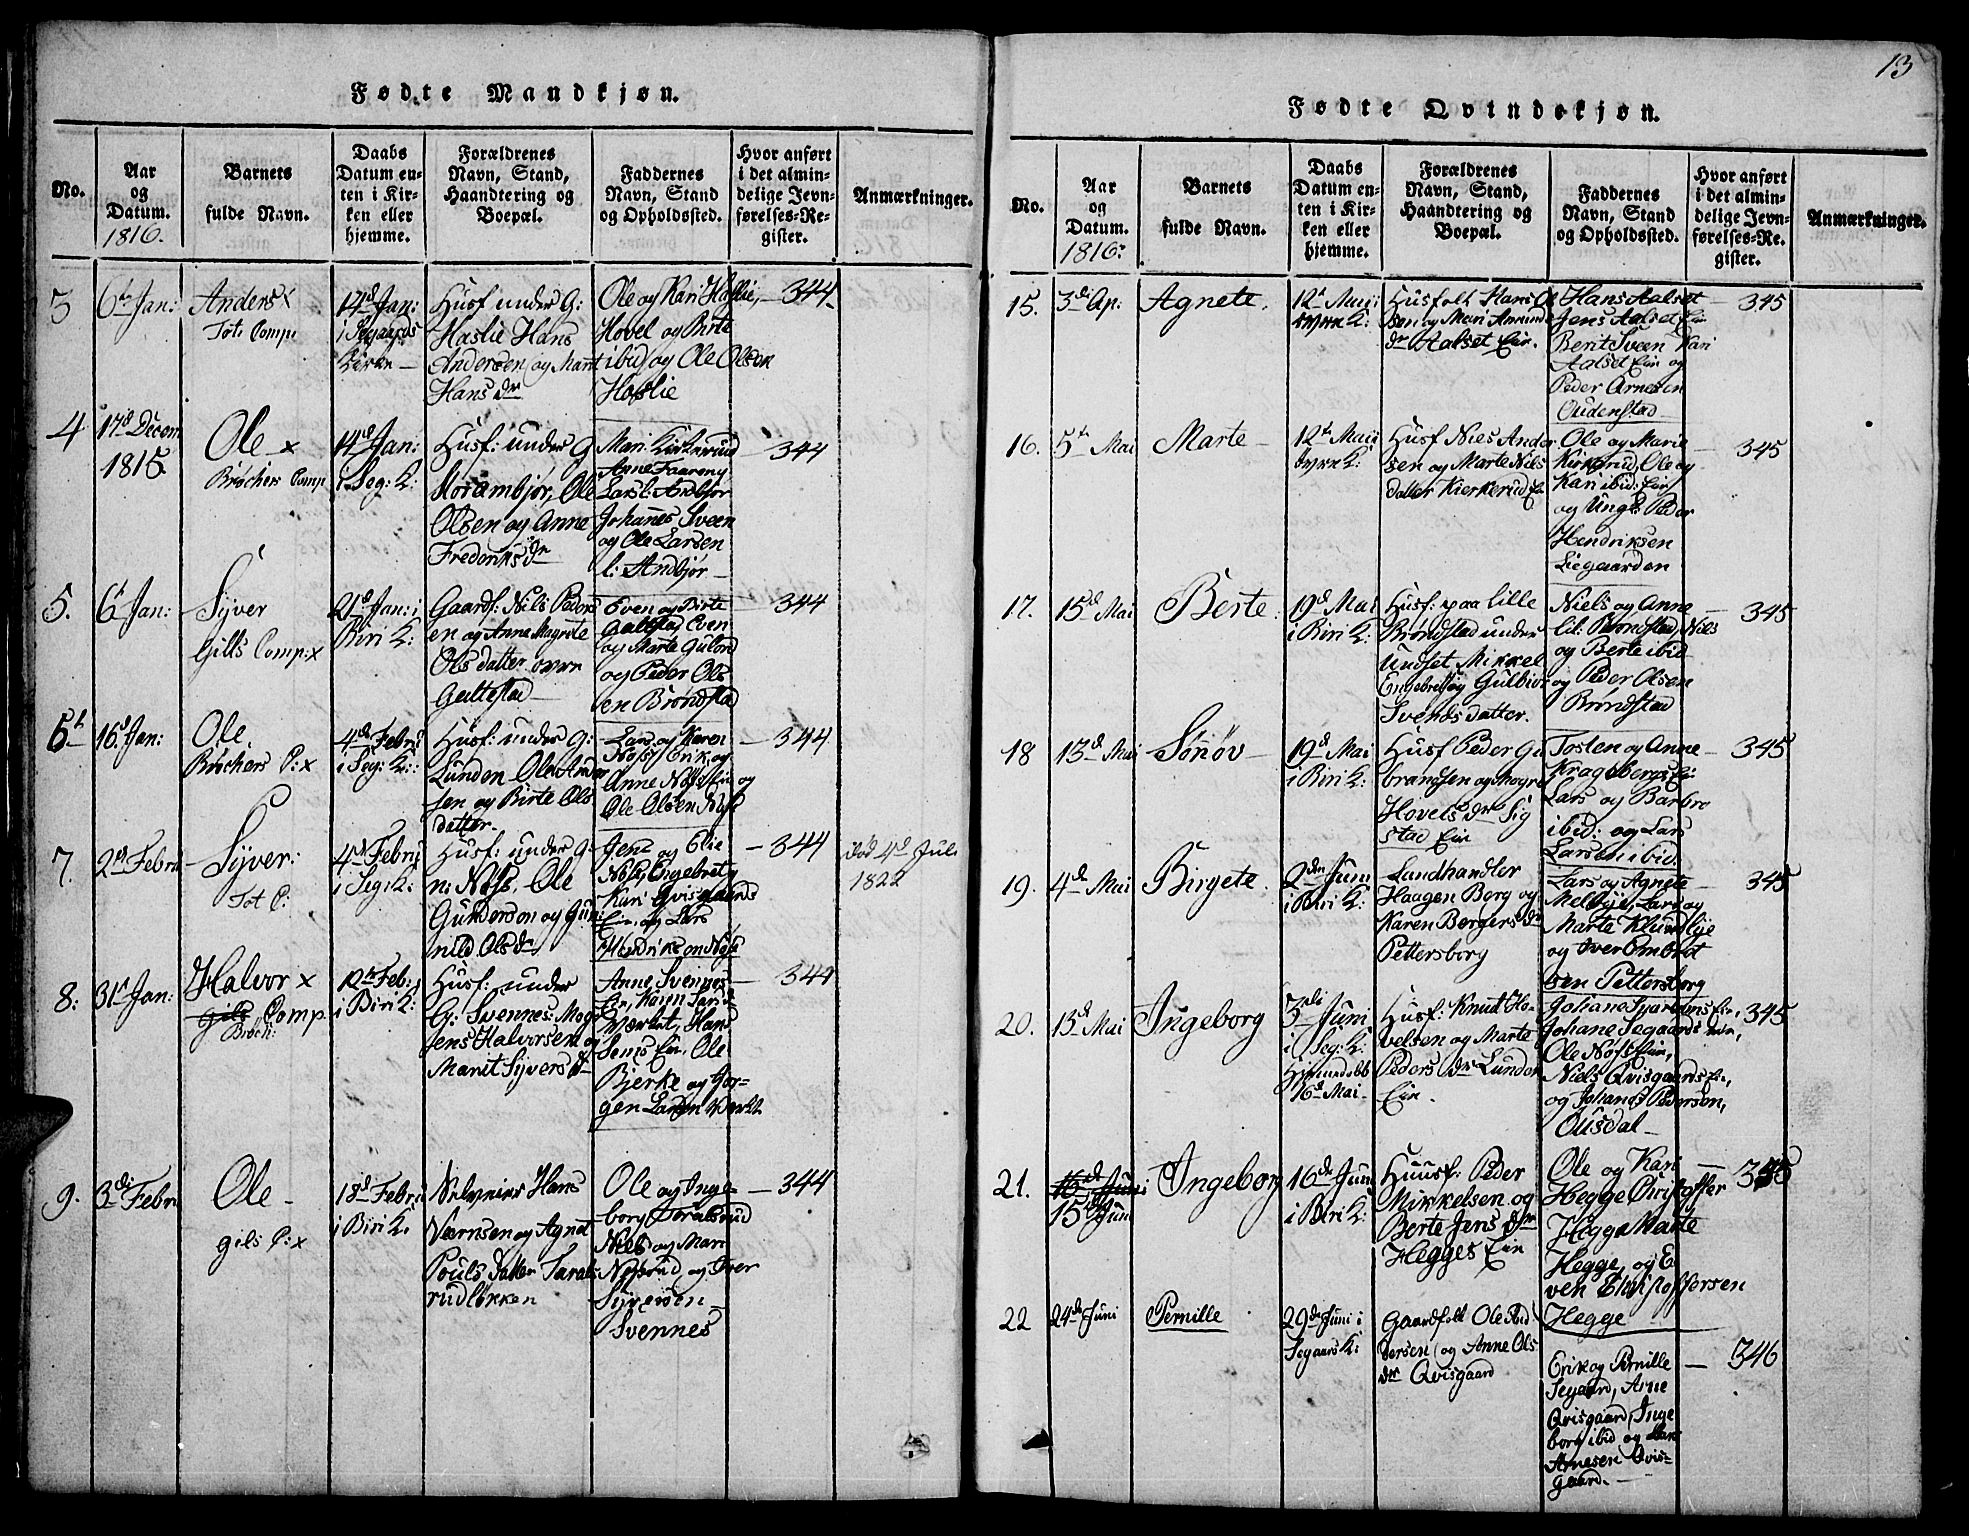 13
Fødte Mandkjøn.
No.
Aar
og
Datum.
1816.
Barnets
fulde Navn.
Daabs
Datum en-
ten i Kir-
ken eller
hjemme.
Forældrenes
Navn, Stand,
Haandtering og
Boepæl.
Faddernes
Navn, Stand
og Opholdssted.
Hvor anført
i det almin-
delige Jevn-
førelses-Re-
gister.
Anmærkninger.
3
6te Jan:
Anders x
Tot: Comp:
14d Jan:
i Segaards
Kirke —
Husf under G:
Haslie Hans
Andersen og Marit
Hans dr
Ole og Kari Haslie,
Hovel og Birte
ibid og Ole Olsen
Hofslie
344
4
17d Decem
1815.
Ole x
Brøchers Comp
14d Jan:
i Seg: K:
Husf: under G
Ole
Olsen og Anne
Frederiks dr
Mari Kirkerud
Anne Faareng
Lars l: Andbjør
Johanes Sveen
og Ole Larsen
l: Andbjør
344
5.
6t Jan:
Syver
Gills Comp: x
21d Jan: i
Biri K:
Gaardf: Nils Peders
en og Anne Magrete
Ols datter øvre
Galtestad
Even og Birte
Galtestad Even
og Marte Gulord
og Peder Ols
en Brøndstad
344
6t
16d Jan:
Ole.
Brøchers C: x
4de Febru
i Seg: K:
Husf: under G:
Lunden Ole Ander
sen og Birte Ols
datter.
Lars og Karen
Nøss, Erik og
Anne Nøss Ein og
Ole Olsen Nøss
344
7.
2d Febru
Syver:
Tot C:
4de Febru
i Seg: K:
Husf: under G:
n: Nøss, Ole
Gunderson og Gun
nild Ols dr
Jens og Elie
Nøss, Engebret og
Kari Qvisgaards
Ein. og Lars
Hendriksen Nøss
344
død 4d Juli
1822
8:
31t Jan:
Halvor x
gils Comp
Brøch:
12te Feb:
i Biri K:
Husf: under
G: Svennes: Mog
ens Halvorsen og
Marit Syvers dr
Anne Svennes
Ein, Karen Lars dr
Værket, Hans
Ein. Ole
Bjerke og Jør-
gen Larsen Værket
344
9.
3di Febru
Ole —
gils C: x
18d Febru
i Biri K:
Selveier Hans
Iversen og Agnet
Pouls datter Tarals
rudløkken
Ole og Inge-
borg Taralsrud
Niels og Mari
Nøssrud og Iver
Syversen
Svennes
344
Fødte Qvindekjøn.
No.
Aar
og
Datum.
1816:
Barnets
fulde Navn.
Daabs
Datum en-
ten i Kir-
ken eller
hjemme.
Forældrenes
Navn, Stand,
Haandtering og
Boepæl.
Faddernes
Navn, Stand
og Opholdssted.
Hvor anført
i det almin-
delige Jevn-
førelses-Re-
gister.
Anmærkninger.
15.
3di Ap:
Agnete.
12te Maii
K:
Husfolk Hans Ol
sen og Mari Amund
dr Aalset Ein.
Hans Aalset
Jens Aalset Ein
Berit Sveen Kari
Aalset Ein og
Peder Arnesen
Oudenstad
345
16.
5te Mai
Marte
12te Maii
K:
Husf Niels Ander
sen og Marte Nils
datter Kierkerud Ein
Ole og Marie
Kirkerud, Ole og
Kari ibid: Ein
og Ungk: Peder
Hendriksen
Liegaarden
345
17.
15d Mai
Berte.
19d Mai
i Biri K:
Husf: paa lille
Brøndstad under
Undset Mikkel
Engebrets: og Gulbior
Svends datter.
Niels og Anne
lil: Brøndstad, Niels
og Berte ibid
og Peder Olsen
Brøndstad
345
18
13d Mai
Sønøv
19d Mai
i Biri K:
Husf Peder Gu
brandsen og Magre
Hovels dr Sig
stad Ein
Tosten og Anne
Kragsbergs Ei:
Lars og Barbro
ibid: og Lars
Larsen ibid
345
19.
4de Mai
Birgete.
2den Juni
i Biri K:
Landhandler
Haagen Berg og
Karen Borgers dr
Pettersborg
Lars og Agnete
Melbye, Lars og
Marte Klundbye
og Iver Embret
sen Pettersborg
345
20.
13d Mai
Ingeborg
3di Juni
i Seg: K:
Hjemmedøbt
16d Mai
Husf: Knut Ho-
velsen og Marte
Peders dr Lunden
Ein.
Johane Ein,
Johane Segaards Ein,
Ole Nøss Ein,
Niels Qvisgaards Ein,
og Johans Pederson,
Ousdal
345
21.
16d Juni
15d Juni
Ingeborg
16de Juni
i Biri K:
Huusf: Peder
Mikkelsen og
Berte Jens dr
Hegges Ein
Ole og Kari
Hegge Christoffer
Hegge Marte
Hegge, og E
ven Christoffersen
Hegge
345
22
24de Juni
Pernille
29de Juni i
Segaars K:
Gaardfolk Ole
dersen og Anne Ols
dr Qvisgaard
Erik og Pernille
Segaard, Arne
Qvisgaard, Inge
borg ibid og Lars
Arnesen Qvis-
gaard.
346